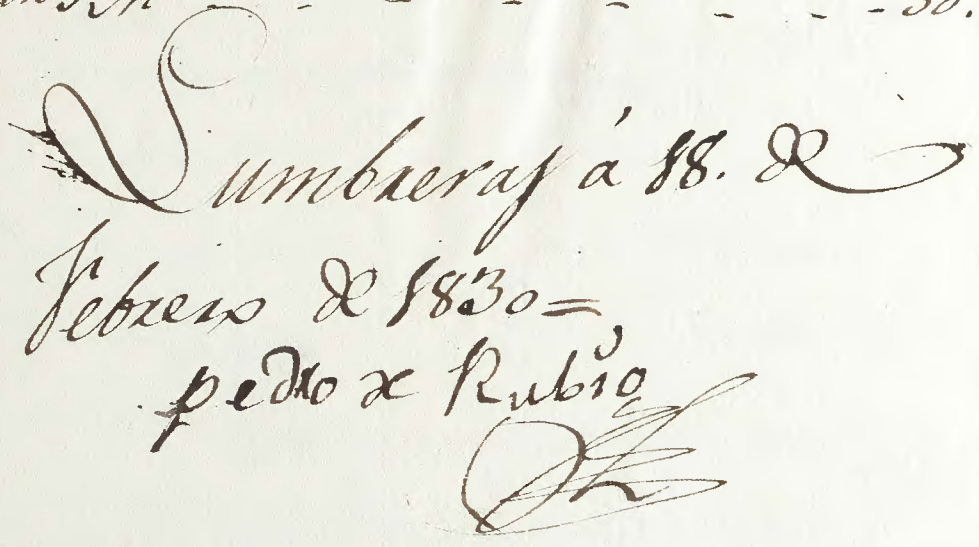 Lumbreras á 18. de
Febrero de 1830=
pedro de Rubio